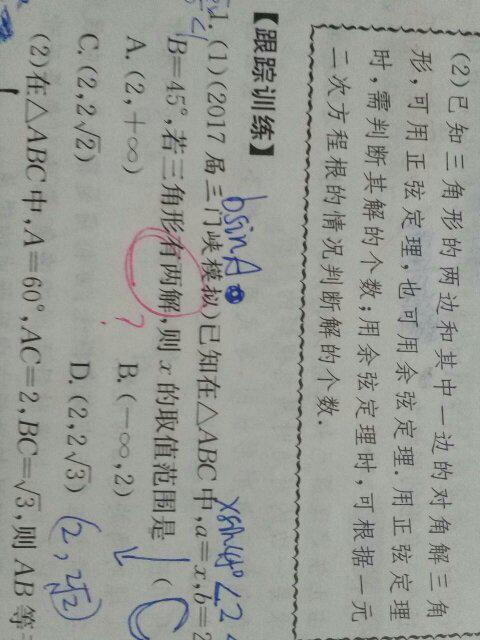 (2)已知三角形的两边和其中一边的对角解三角
形,可用正弦定理,也可用余弦定理.用正弦定理
时,需判断其解的个数;用余弦定理时,可根据一元
二次方程根的情况判断解的个数.
【跟踪训练】
bsinA
1.(1)(2017届三门峡模拟)已知在△ABC中,a=x,b=2
xsin45°<2<
B=45°,若三角形有两解,则x的取值范围是 (
C
?
A.(2,+∞) B.(-∞,2)
C.(2,2√2) D.(2,2√3)
(2,2√2)
(2)在△ABC中,A=60°,AC=2,BC=√3,则AB等